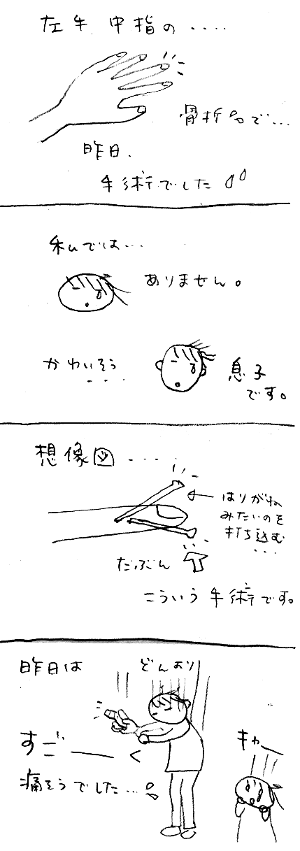 左手 中指の....
骨折で...
昨日、
手術でした
私では...
ありません。
かわいそう
....
息子
です。
想像図....
はりがね
みたいのを
打ち込む
...
たぶん
こういう手術です。
昨日は
どんより
すご──く
痛そうでした...。
キャー